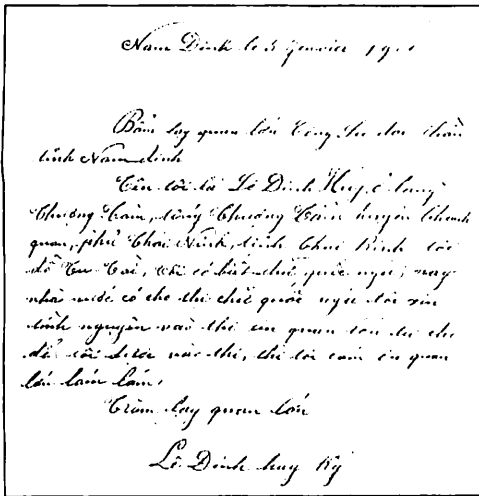 Nam Định le 5 janvier 19
Bẩm lạy quan lớn Công Sứ đại thần
tỉnh Nam định
Tên tôi là Lê Đình Huy ở làng
Thượng Tầm, tổng Thượng Tầm huyện Thanh
quan, phủ Thái Ninh, tỉnh Thái Bình tôi
đỗ Tú Tài, tôi có biết chữ quốc ngữ; nay
nhà nước có cho thi chữ quốc ngữ tôi xin
tình nguyện vào thi xin quan lớn
để tôi được vào thi, thì tôi cám ơn quan
lớn lắm lắm.
Trăm lạy quan lớn
Lê Đình huy Ký